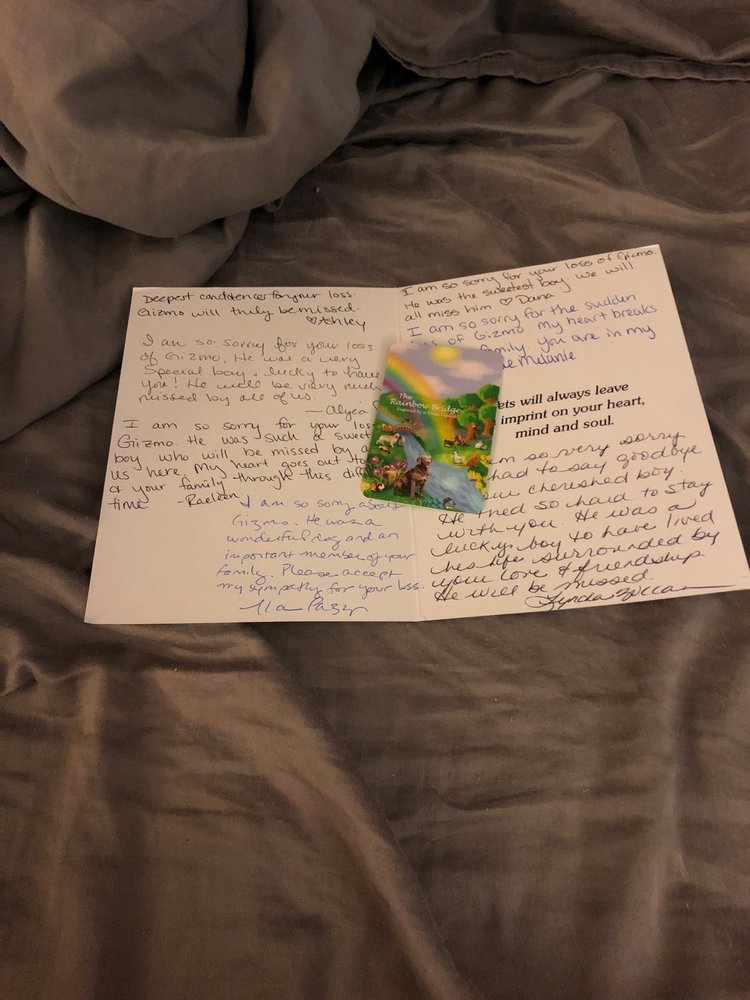 Deepest condolences for your loss.
Gizmo will truly be missed.
♡Ashley
I am so sorry for your loss
of Gizmo. He was a very
special boy & lucky to have
you! He will be very much
missed by all of us.
— Alyca
I am so sorry for your loss
Gizmo. He was such a sweet
boy who will be missed by a
us here. My heart goes out to
& your family through this diff
time -Raeleen
I am so sorry about
Gizmo. He was a
wonderful dog and an
important member of your
family. Please accept
my sympathy for your loss.
I am so sorry for your loss of Gizmo.
He was the sweetest boy, we will
all miss him ♡ Dana
I am so sorry for the sudden
loss of Gizmo. My heart breaks
family. You are in my
Melanie
The
Rainbow Bridge
inspired by a
ets will always leave
imprint on your heart,
mind and soul.
am so very sorry
had to say goodbye
cherished boy.
He tried so hard to stay
with you. He was a
lucky boy to have lived
his life surrounded by
your love & friendship
He will be missed.
Lynda